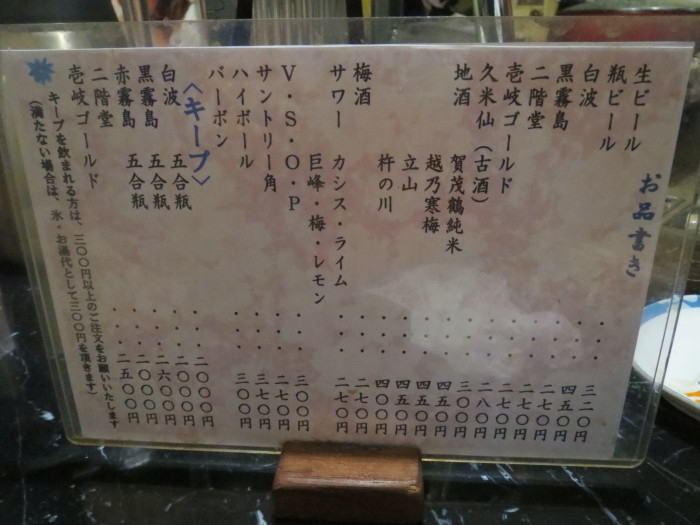 お品書き
生ビール・・・三二〇円
瓶ビール・・・四五〇円
白波・・・二七〇円
黒霧島・・・二七〇円
二階堂・・・二七〇円
壱岐ゴールド・・・二八〇円
久米仙（古酒）・・・三〇〇円
地酒 賀茂鶴純米・・・四五〇円
越乃寒梅・・・四五〇円
立山・・・四五〇円
杵の川・・・四〇〇円
梅酒・・・二七〇円
サワー カシス・ライム・・・二七〇円
巨峰・梅・レモン
V・S・O・P・・・三〇〇円
サントリー角・・・二七〇円
ハイボール・・・三七〇円
バーボン・・・三〇〇円
〈キープ〉
白波 五合瓶・・・二〇〇〇円
黒霧島 五合瓶・・・二〇〇〇円
赤霧島 五合瓶・・・二六〇〇円
二階堂・・・二〇〇〇円
壱岐ゴールド・・・二五〇〇円
キープを飲まれる方は、三〇〇円以上のご注文をお願いいたします
（満たない場合は、氷・お湯代として三〇〇円を頂きます）